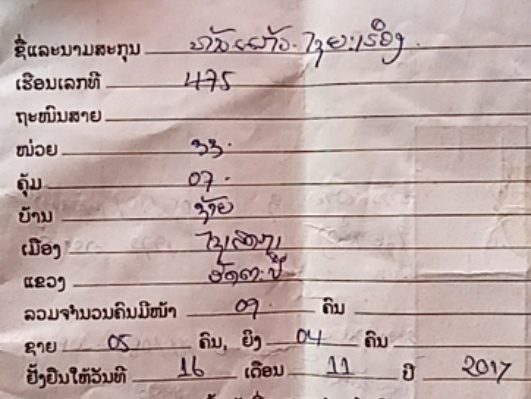 ຊື່ແລະນາມສະກຸນ
ເຮືອນເລກທີ 475
ຖະໜົນສາຍ
ໜ່ວຍ 33.
ຄຸ້ມ 07.
ບ້ານ
ເມືອງ
ແຂວງ ອັດຕະປື
ລວມຈຳນວນຄົນມີໜ້າ 09 ຄົນ
ຊາຍ 05 ຄົນ, ຍິງ 04 ຄົນ
ຢັ້ງຢືນໃຫ້ວັນທີ 16 ເດືອນ 11 ປີ 2017